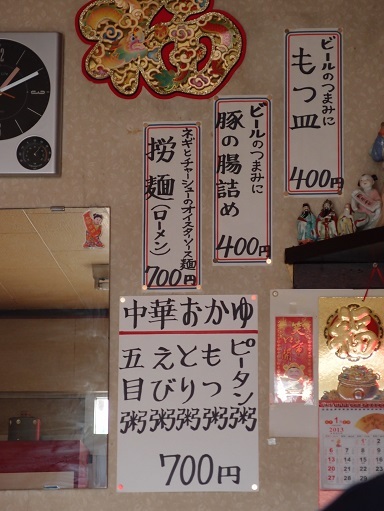 ビールのつまみに
もつ皿
400円
ビールのつまみに
豚の腸詰め
400円
ネギとチャーシューのオイスターソース麺
撈麺(ローメン)
700円
中華おかゆ
ピータン粥
もつ粥
とり粥
えび粥
五目粥
700円
福
2013